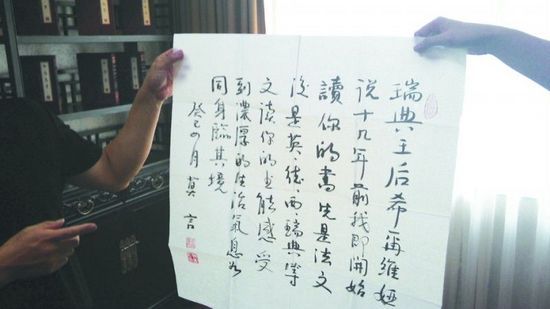 瑞典王后希尔維婭
说十几年前我即開始
讀你的書先是法文
後是英、德、西、瑞典等
文读你的書能感受
到濃厚的生活氣息如
同身臨其境
癸巳四月 莫言